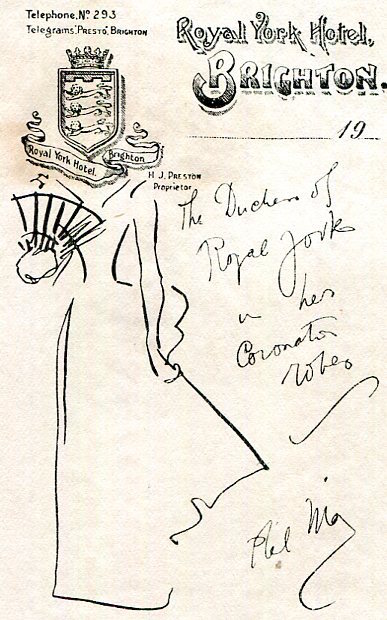 Telephone, Nº 293
Telegrams: "PRESTO", BRIGHTON
Royal York Hotel,
BRIGHTON.
19
Royal York Hotel, Brighton
H. J. PRESTON
Proprietor
The Duchess of
Royal York
in her
Coronation
robes
Phil May